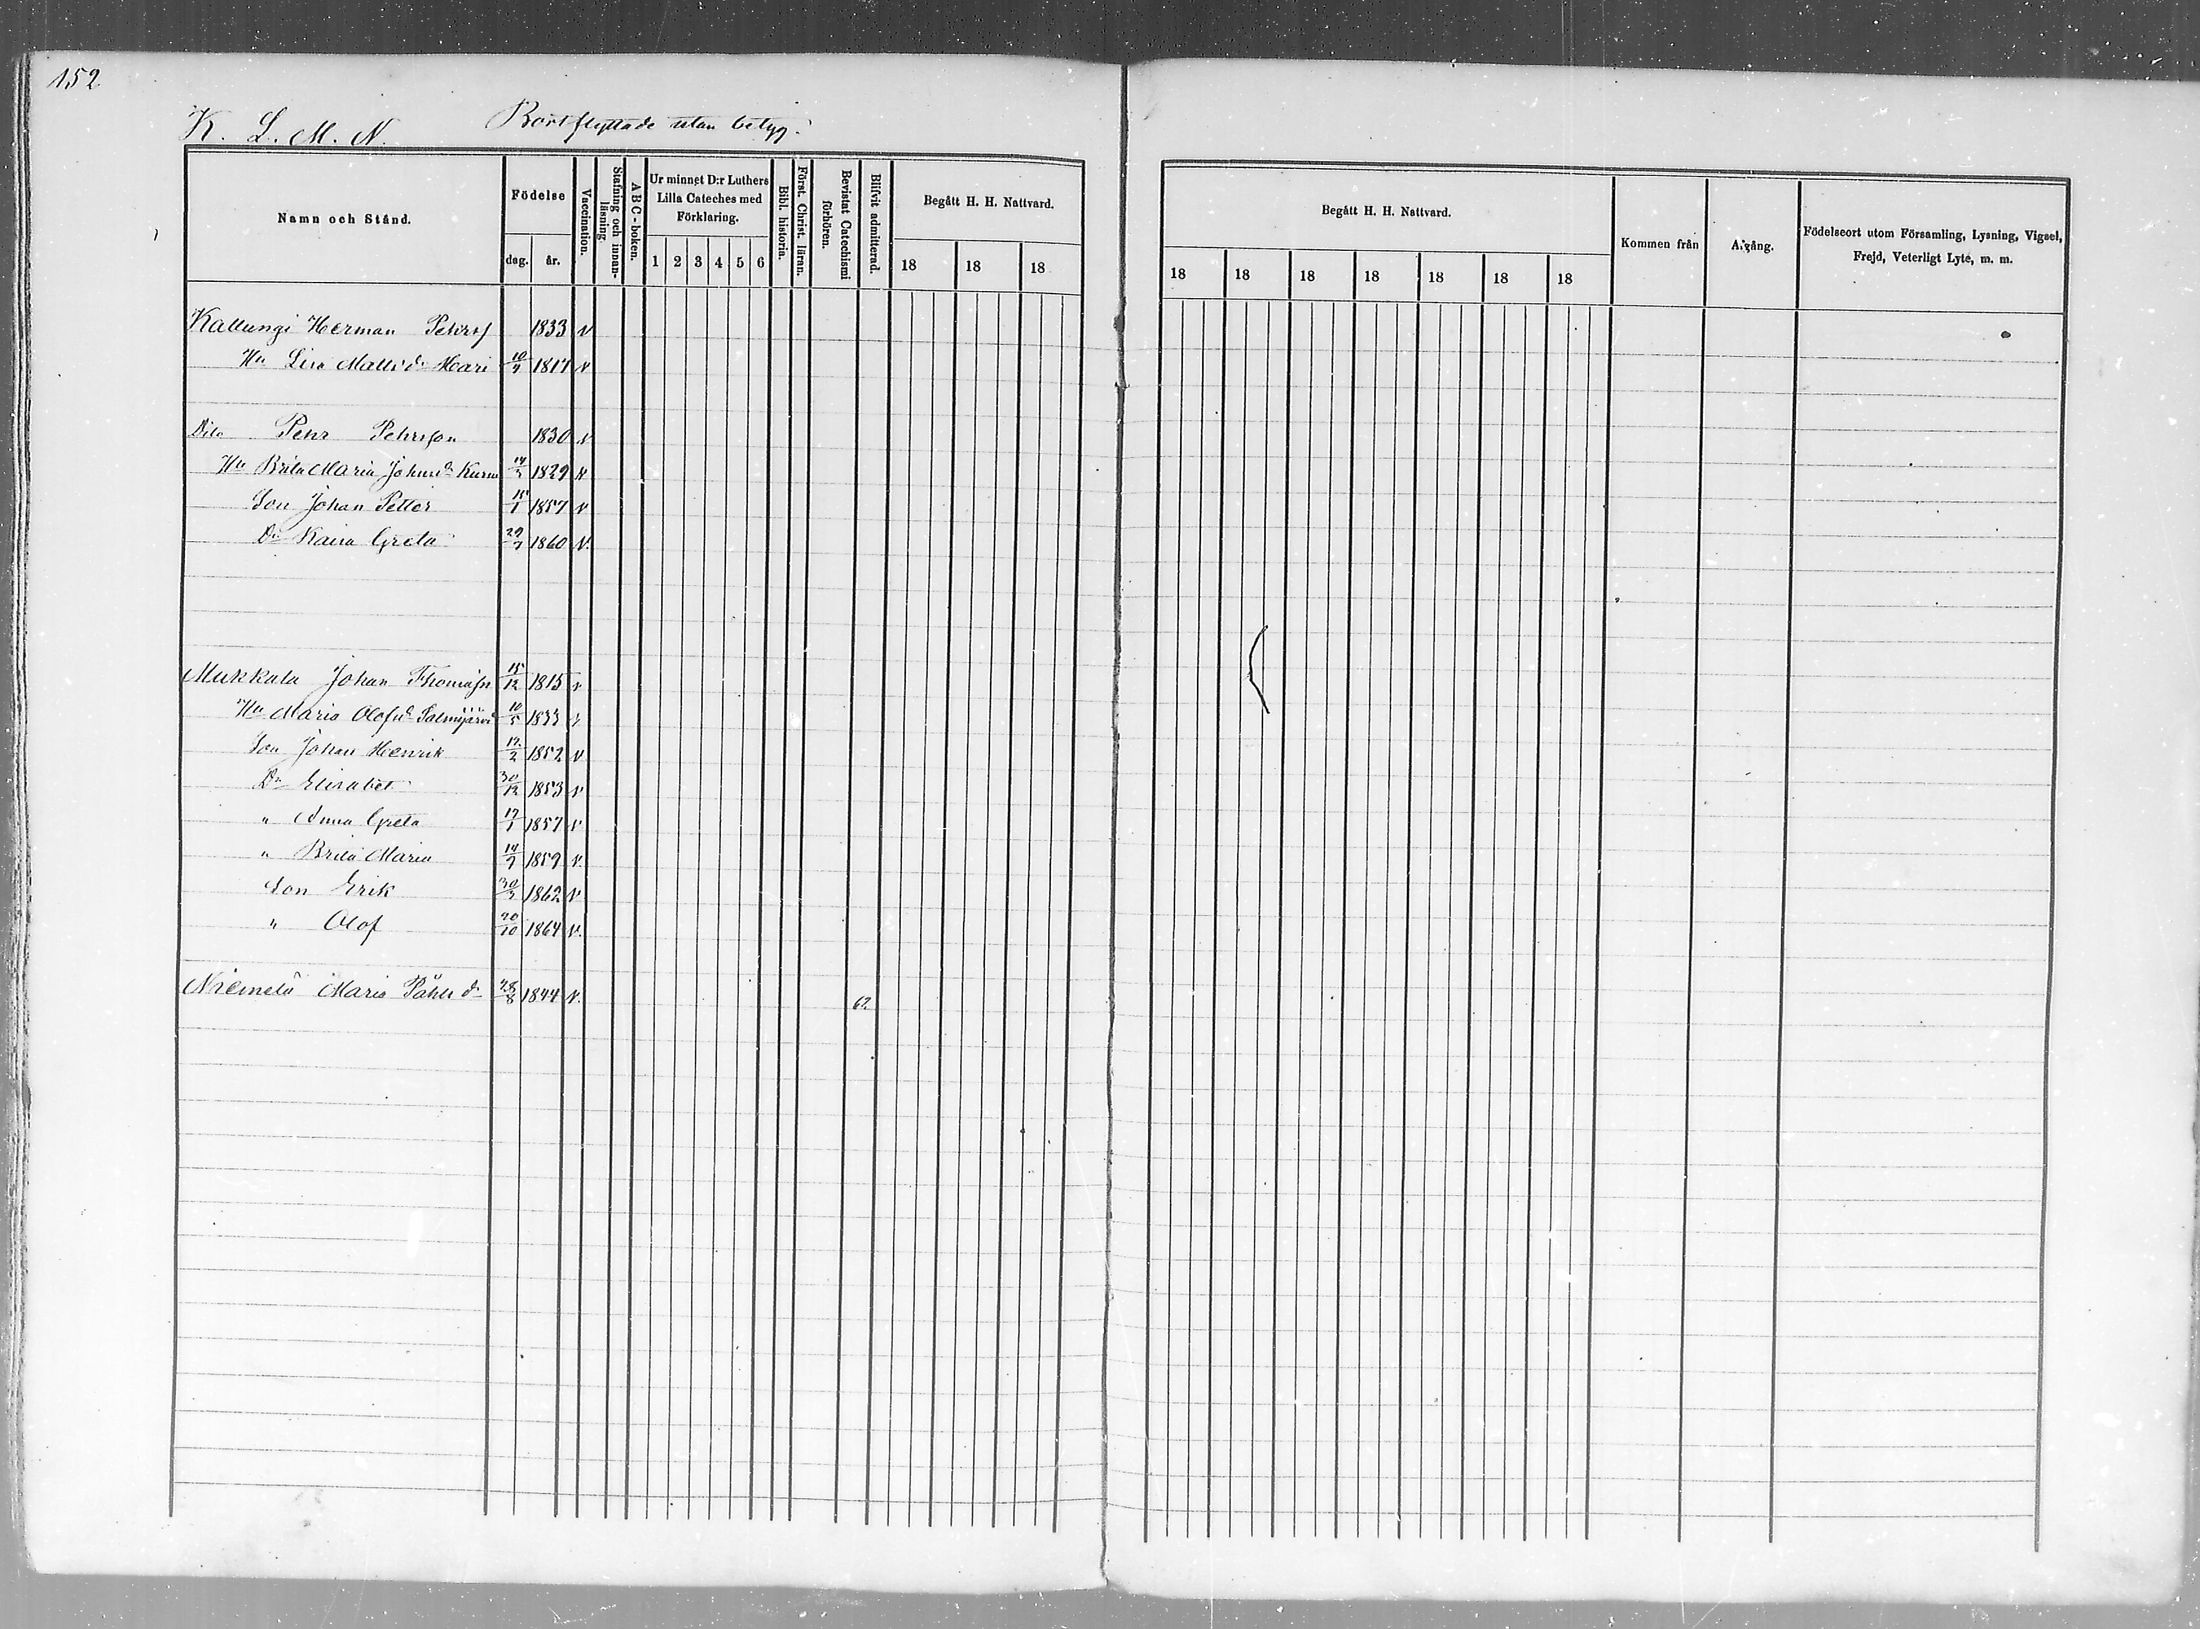 152
K. L. M. N. Bortflyttade utan betyg.
Namn och Stånd. Födelse Vaccination. Stafning och innan-läsning ABC-boken. Ur minnet D:r Luthers Lilla Cateches med Förklaring. Bibl. historia. Först. Christ. läran. Bevistat Catechismi förhören. Blifvit admitterad. Begått H. H. Nattvard. Begått H. H. Nattvard. Kommen från Afgång. Födelseort utom Församling, Lysning, Vigsel, Frejd, Veterligt Lyte, m. m.
dag. år. 1 2 3 4 5 6 18 18 18 18 18 18 18 18 18 18
Kallungi Herman Pehrss 1833 v
Hu Lisa Matts d. Hari 10/7 1817 v
Dito Pehr Pehrsson 1830 v
Hu Brita Maria Johns d. 14/3 1829 v
Son Johan Petter 15/1 1857 v
Dr Kaisa Greta 29/7 1860 v.
Mukkala Johan Thomass 15/12 1815 v
Hu Maria Olofs d. Salmijärvi 10/5 1833 v
Son Johan Henrik 12/2 1852 v
Dr Elisabet 30/12 1853 v
" Anna Greta 17/1 1857 v
" Brita Maria 14/9 1859 v.
Son Erik 30/3 1862 v
" Olof 20/10 1864 v.
Niemelä Maria Påhls d. 28/8 1844 v. 62.